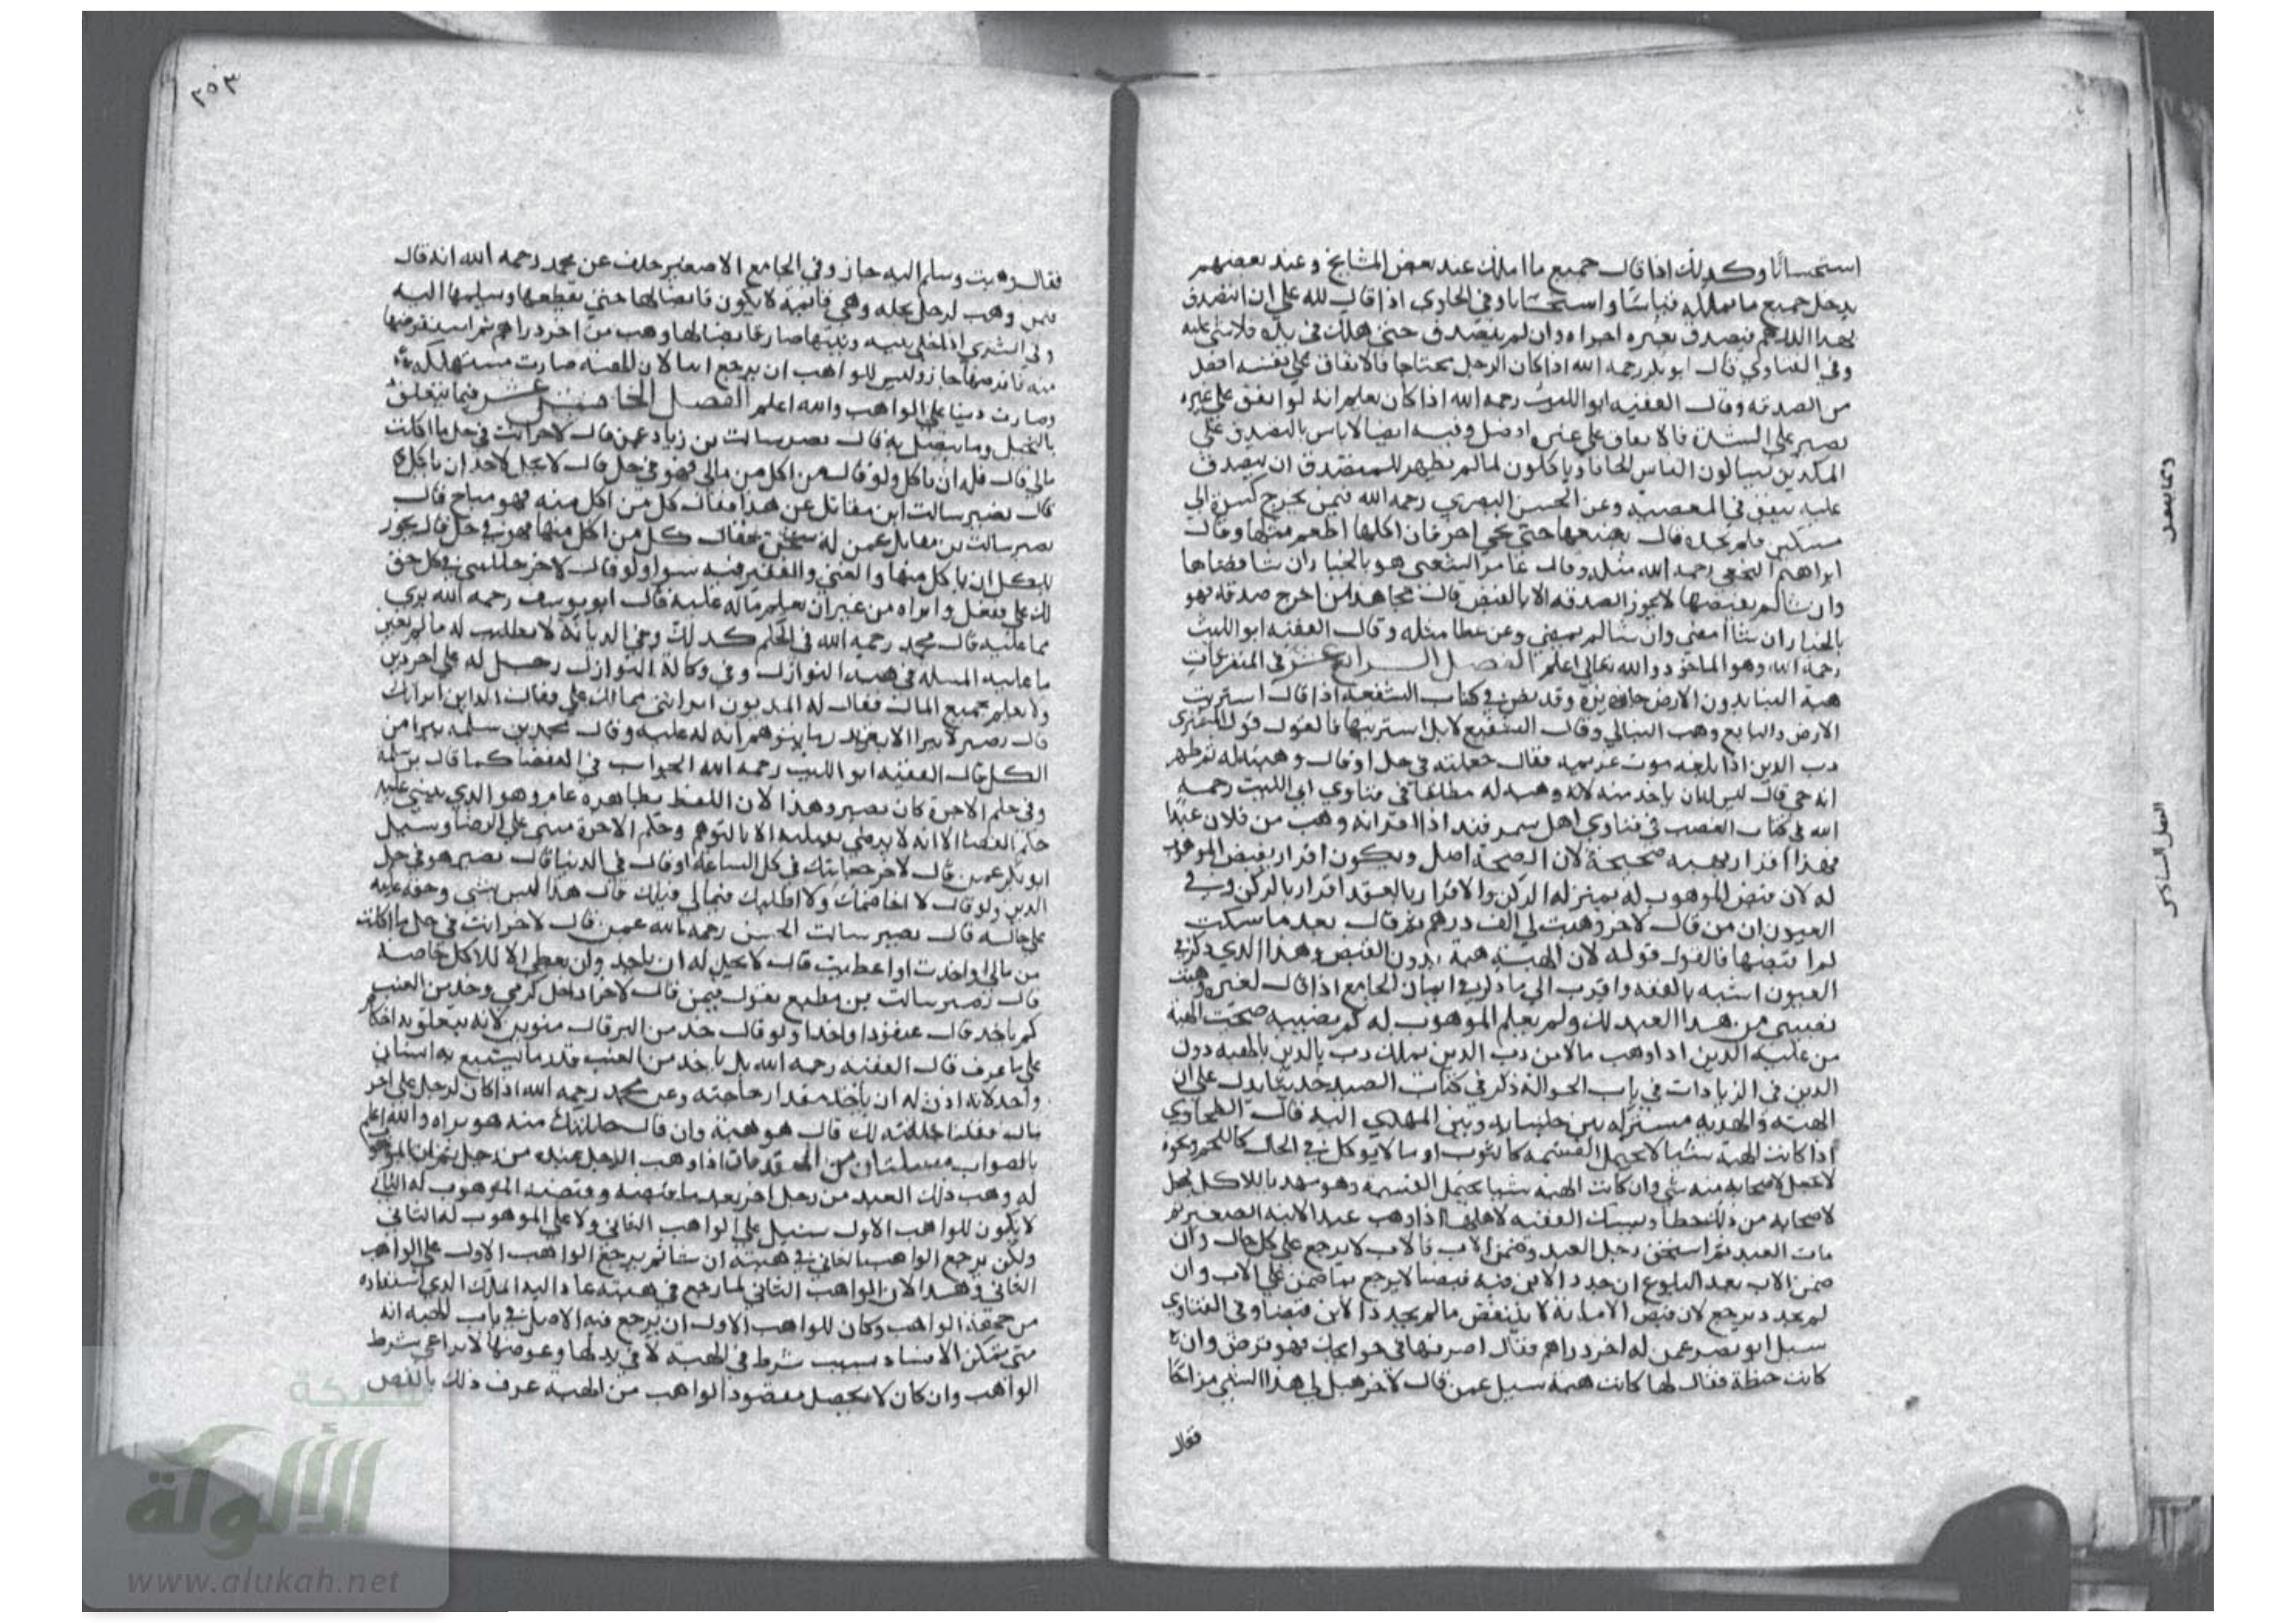 استحسانا وكذلك اذا قال جميع ما املك عند بعض المشايخ وعند بعضهم
يدخل جميع ما يملك قياسا واستحسانا وفي الحاوي اذا قال لله علي ان اتصدق
بهذا الدرهم فتصدق بغيره اجزاه وان لم يتصدق حتى هلك في يده فلا شي عليه
وفي الفتاوي قال ابو بكر رحمه الله اذا كان الرجل محتاجا فالانفاق على نفسه افضل
من الصدقه وقال الفقيه ابو الليث رحمه الله اذا كان يعلم انه لو انفق على غيره
يصبر على الشدة فالانفاق على غيره افضل وفيه ايضا لا باس بالتصدق على
المكدين يسالون الناس الحافا وياكلون لما لم يظهر للمتصدق ان يتصدق
عليه ينفق في المعصيه وعن الحسن البصري رحمه الله فيمن يخرج كسرة الي
مسكين فلم يجده قال يضعها حتى يجي اخر فان اكلها اطعم مثلها وقال
ابراهيم النخعي رحمه الله مثله وقال عامر الشعبي هو بالخيار ان شا قضاها
وان شا لم يقضها لا يجوز الصدقه الا بالقبض قال مجاهد من اخرج صدقه فهو
بالخيار ان شا امضى وان شا لم يمضي وعن عطا مثله وقال الفقيه ابو الليث
رحمه الله وهو الماخوذ والله تعالى اعلم الفصل الرابع عشر في المتفرقات
هبة البنا بدون الارض جايزة وقد نص في كتاب الشفعه اذا قال اشتريت
الارض والبايع وهب البنا لي وقال الشفيع لا بل اشتريتها فالقول قول المشتري
رب الدين اذا بلغه موت غريمه فقال جعلته في حل او قال وهبته له ثم ظهر
انه حي قال ليس له ان ياخذ منه لانه وهبه له مطلقا في فتاوي ابي الليث رحمه
الله في كتاب الغصب في فتاوي اهل سمرقند اذا اقر انه وهب من فلان عبدا
فهذا اقرار بهبه صحيحة لان الصحة اصل ويكون اقرار بقبض الموهوب
له لان قبض الموهوب له بمنزله الركن والاقرار بالعقد اقرار بالركن وفي
العيون ان من قال لاخر وهبت لي الف درهم ثم قال بعد ما سكت
لم اقبضها فالقول قوله لان الهبة هبة بدون القبض وهذا الذي ذكر في
العيون اشبه بالفقه واقرب الي ما ذكر في ايمان الجامع اذا قال لغيره وهبت
نصيبي من هذا العبد لك ولم يعلم الموهوب له كم نصيبه صحت الهبة
من عليه الدين اذا وهب مالا من رب الدين يملك رب الدين بالهبه دون
الدين في الزيادات في باب الحوالة ذكر في كتاب الصيد حديثا يدل على ان
الهبه والهديه مشتركه بين جلسايه وبين المهدي اليه قال الطحاوي
اذا كانت الهبة شيا لا يحتمل القسمه كالثوب او ما لا يوكل في الحال كاللحم ونحوه
لا يجعل لاصحابه منه شي وان كانت الهبه شيا يحتمل القسمة وهو مهيا للاكل يجعل
لاصحابه من ذلك حظا ويمسك البقيه لاهله اذا وهب عبدا لابنه الصغير ثم
مات العبد ثم استحق رجل العبد وضمن الاب فالاب لا يرجع على كل حال وان
ضمن الابن بعد البلوغ ان جدد الابن فيه قبضا لا يرجع بما ضمن علي الاب وان
لم يجدد يرجع لان قبض الامانة لا ينتقض ما لم يجدد الابن قبضا وفي الفتاوي
سيل ابو نصر عمن له اخر دراهم فقال اصرفها في حوايجك فهو قرض وان
كانت حنطة فقال لها كانت هبة سيل عمن قال لاخر هب لي هذا الشي مزاحا
فقال
٢٥٣
فقال وهبت وسلم اليه جاز وفي الجامع الاصغر خلف عن محمد رحمه الله انه قال
فيمن وهب لرجل نخله وهي قايمة لا يكون قابضا لها حتى يقطعها ويسلمها اليه
وفي الشري اذا خلي بينه وبينها صار قابضا لها وهب من اخر دراهم ثم استقرضها
منه فاقرضها جاز وليس للواهب ان يرجع ابدا لان الهبة صارت مستهلكة
وصارت دينا علي الواهب والله اعلم الفصل الخامس عشر فيما يتعلق
بالتحليل وما يتصل به قال نصر سالت بن زياد عمن قال لاخر انت في حل ما اكلت
مالي قال فله ان ياكل ولو قال من اكل من مالي فهو في حل قال لا يحل لاحد ان ياكل
قال نصير سالت ابن مقاتل عن هذا فقال كل من اكل منه فهو مباح قال
نصير سالت بن مقاتل عمن له شجر فقال كل من اكل منها فهو في حل قال يجوز
للكل ان ياكل منها والغني والفقير فيه سوا ولو قال لاخر حللني في كل حق
لك علي ففعل وابراه من غير ان يعلم ماله عليه قال ابو يوسف رحمه الله بري
مما عليه قال محمد رحمه الله في الحكم كذلك وفي الديانة لا يطيب له ما لم يعين
ما عليه المسله في هبة النوازل وفي وكالة النوازل رجل له على اخر دين
ولا يعلم بجميع المال فقال له المديون ابراتني مما لك علي وقال الداين ابراتك
قال نصير لا يبرا الا بقدر ما يتوهم انه له عليه وقال محمد بن سلمه يبرا من
الكل قال الفقيه ابو الليث رحمه الله الجواب في القضا كما قال بن سلمة
وفي حكم الاخرة كان نصير وهذا لان اللفظ بظاهره عام وهو الذي يبتني عليه
حكم القضا الا انه لا يرضي بعمله الا بالتوهم وحكم الاخرة مبني علي الرضا وسيل
ابو بكر عمن قال لاخر حاليتك في كل الساعة او قال في الدنيا قال نصير هو في حل
الدين ولو قال لا اخاصمك ولا اطلبك فيما لي قبلك قال هذا ليس بشي وحقه عليه
على حاله قال نصير سالت الحسن رحمه الله عمن قال لاخر انت في حل ما اكلت
من مالي او اخذت او اعطيت قال لا يحل له ان ياخذ ولن يعطي الا للاكل خاصة
قال نصير سالت بن مطيع يقول فيمن قال لاخر ادخل كرمي وخذ من العنب
كم ياخذ قال عنقودا واحدا ولو قال خذ من البر قال منوين لانه يتعلق به احكام
علي ما عرف قال الفقيه رحمه الله بل ياخذ من العنب قدر ما يشبع به انسان
واحد لانه اذن له ان ياخذ مقدار حاجته وعن محمد رحمه الله اذا كان لرجل على اخر
مال فقال حللته لك قال هو هبة وان قال حاللتك منه هو براه والله اعلم
بالصواب مسلتان من المتفرقات اذا وهب الرجل عبده من رجل ثم ان الموهوب
له وهب ذلك العبد من رجل اخر بعد ما قبضه وقبضه الموهوب له الثاني
لا يكون للواهب الاول سبيل علي الواهب الثاني ولا علي الموهوب له الثاني
ولكن يرجع الواهب الثاني في هبته ان شا ثم يرجع الواهب الاول على الواهب
الثاني وهذا لان الواهب الثاني لما رجع في هبته عاد اليه الملك الذي استفاده
من جهة الواهب وكان للواهب الاول ان يرجع فيه الاصل في باب الهبه انه
متى تمكن الفساد بسبب شرط في الهبة لا في بدلها وعوضها لا يراعي شرط
الواهب وان كان لا يحصل مقصود الواهب من الهبة عرف ذلك بالنص
شبكة
الألوكة
www.alukah.net